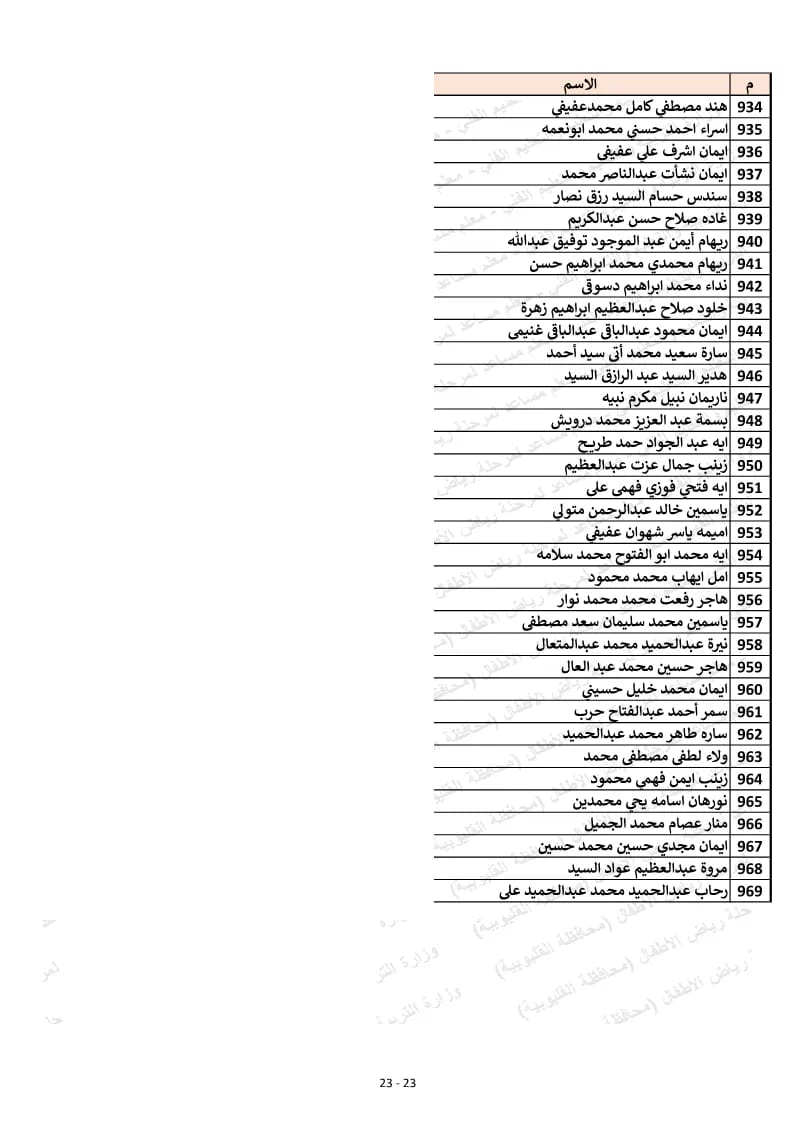 م الاسم
934 هند مصطفي كامل محمدعفيفي
935 اسراء احمد حسني محمد ابونعمه
936 ايمان اشرف علي عفيفى
937 ايمان نشأت عبدالناصر محمد
938 سندس حسام السيد رزق نصار
939 غاده صلاح حسن عبدالكريم
940 ريهام أيمن عبد الموجود توفيق عبدالله
941 ريهام محمدي محمد ابراهيم حسن
942 نداء محمد ابراهيم دسوقى
943 خلود صلاح عبدالعظيم ابراهيم زهرة
944 ايمان محمود عبدالباقى عبدالباقى غنيمى
945 سارة سعيد محمد أتى سيد أحمد
946 هدير السيد عبد الرازق السيد
947 ناريمان نبيل مكرم نبيه
948 بسمة عبد العزيز محمد درويش
949 ايه عبد الجواد حمد طريح
950 زينب جمال عزت عبدالعظيم
951 ايه فتحي فوزي فهمى على
952 ياسمين خالد عبدالرحمن متولي
953 اميمه ياسر شهوان عفيفي
954 ايه محمد ابو الفتوح محمد سلامه
955 امل ايهاب محمد محمود
956 هاجر رفعت محمد محمد نوار
957 ياسمين محمد سليمان سعد مصطفى
958 نيرة عبدالحميد محمد عبدالمتعال
959 هاجر حسين محمد عبد العال
960 ايمان محمد خليل حسيني
961 سمر أحمد عبدالفتاح حرب
962 ساره طاهر محمد عبدالحميد
963 ولاء لطفى مصطفى محمد
964 زينب ايمن فهمي محمود
965 نورهان اسامه يحي محمدين
966 منار عصام محمد الجميل
967 ايمان مجدي حسين محمد حسين
968 مروة عبدالعظيم عواد السيد
969 رحاب عبدالحميد محمد عبدالحميد على
رياض الأطفال (محافظة القليوبية)
وزارة التر
رياض الأطفال (محافظة القليوبية)
وزارة التربية
23 - 23